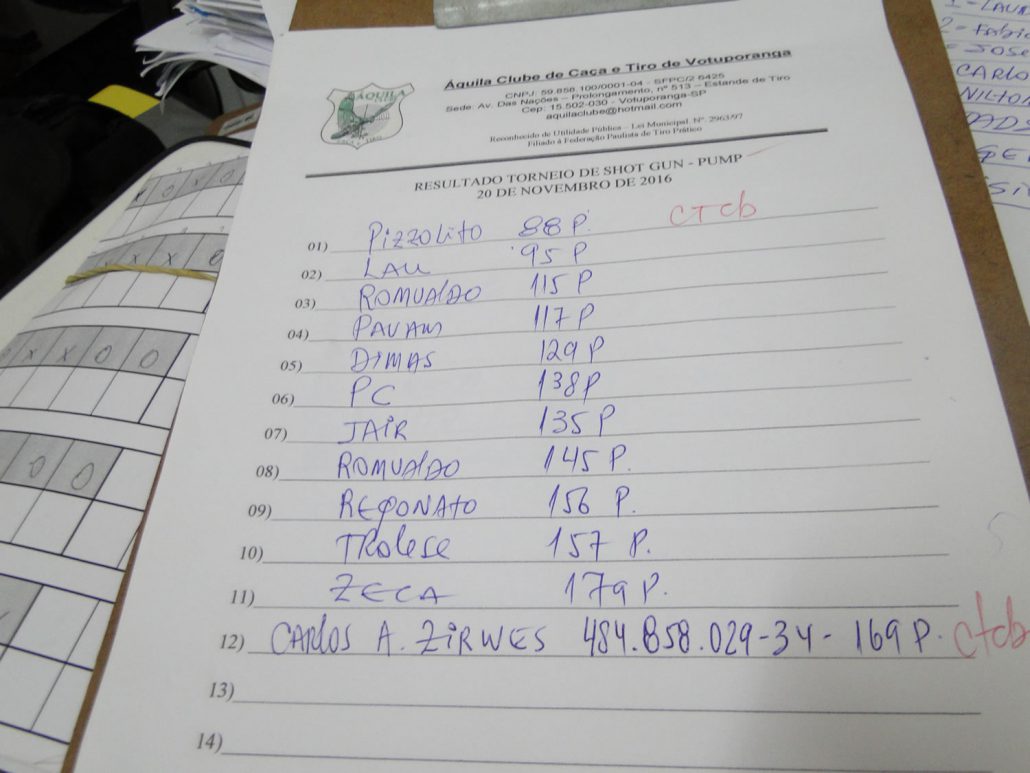 Áquila Clube de Caça e Tiro de Votuporanga
CNPJ: 59.858.100/0001-04 - SFPC/2 5425
Sede: Av. Das Nações – Prolongamento, nº 513 – Estande de Tiro
Cep: 15.502-030 - Votuporanga-SP
aquilaclube@hotmail.com
Reconhecido de Utilidade Pública – Lei Municipal. Nº. 2963/97
Filiado à Federação Paulista de Tiro Prático
ÁQUILA
CAÇA E TIRO
RESULTADO TORNEIO DE SHOT GUN - PUMP
20 DE NOVEMBRO DE 2016
CTCb
01) Pizzolito 88 P.
02) LAU 95 P
03) ROMUALDO 115 P
04) PAVAM 117 P
05) DIMAS 129 P
06) PC 138 P
07) JAIR 135 P
08) ROMUALDO 145 P.
09) 156 P.
10) TROLESE 157 P.
11) ZECA 179 P.
12) CARLOS A. ZIRWES 484.858.029-34 - 169 P. CTCb
13)
14)
X X 0 0
0 0
2 - Fabio
JOSE
CARLO
NILTO